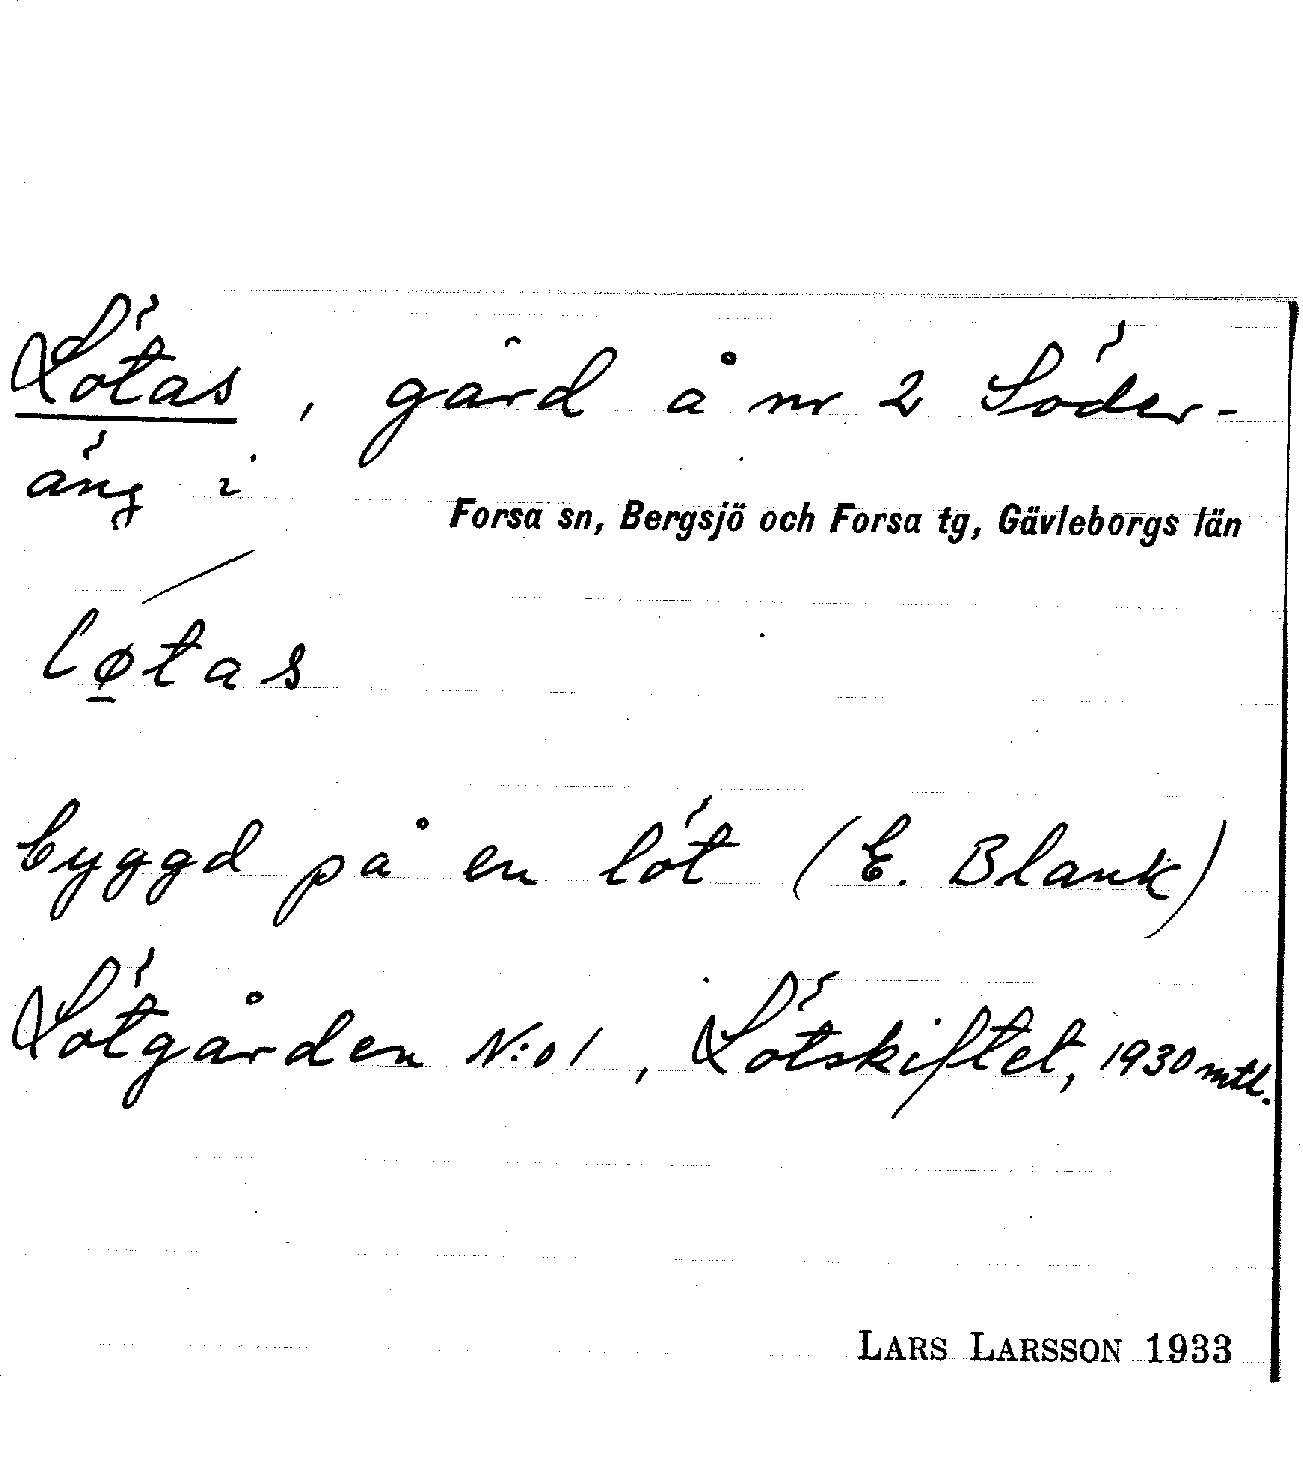 Lötas, gård å nr 2 Söder-
äng i
Forsa sn, Bergsjö och Forsa tg, Gävleborgs län
lø̲tas
byggd på en löt (E. Blank)
Lötgården N:o 1, Lötskiftet, 1930 mtl.
LARS LARSSON 1933